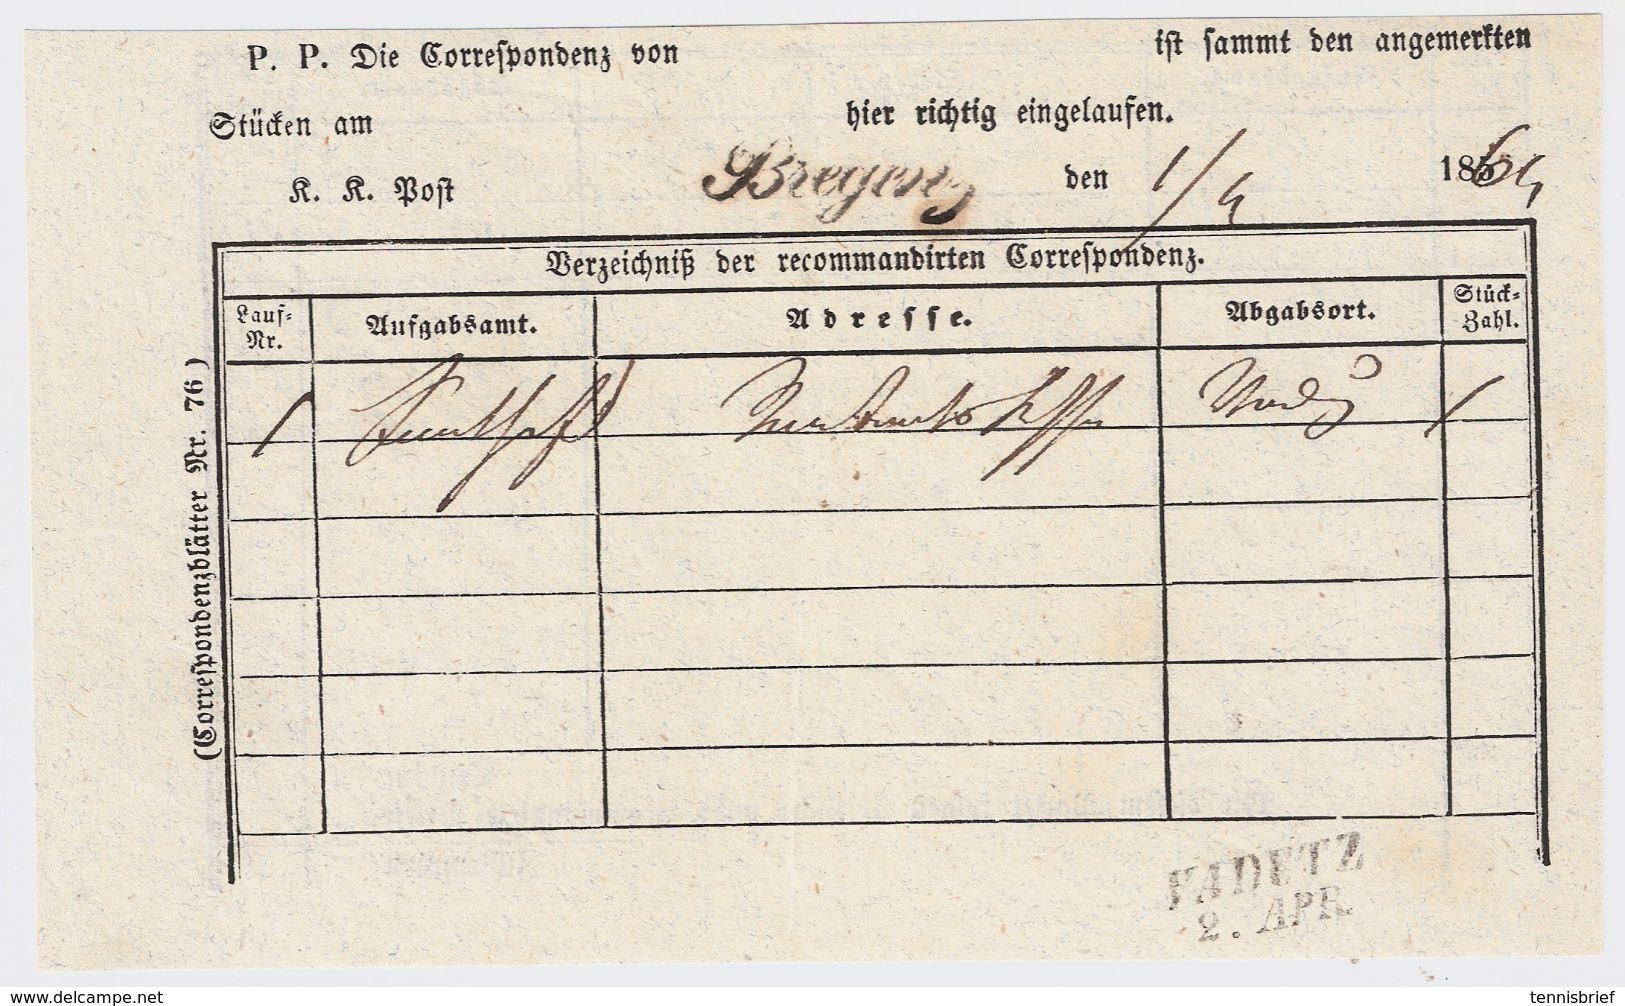 P. P. Die Correſpondenz von ist ſammt den angemerkten
Stücken am hier richtig eingelaufen.
K. K. Poſt Bregenz den 1/4 1864
Verzeichniß der recommandirten Correſpondenz.
Lauf-Nr. Aufgabsamt. Adreſſe. Abgabsort. Stück-Zahl.
1 1
(Correſpondenzblätter Nr. 76)
VADUTZ
2. APR.
www.delcampe.net
tennisbrief